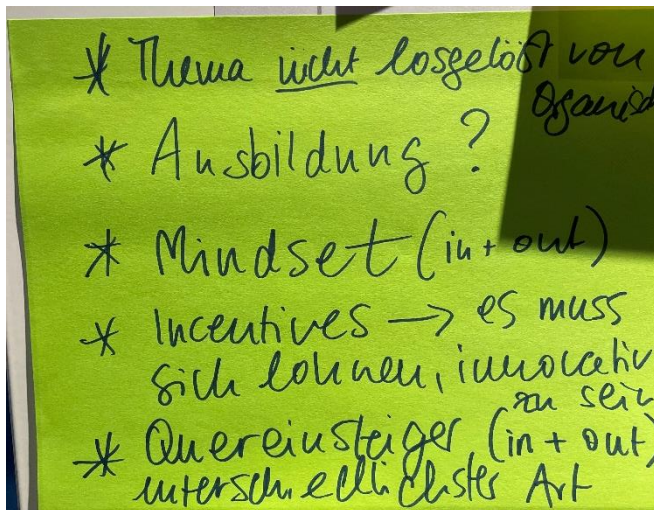 * Thema nicht losgelöst von
Oganisch
* Ausbildung ?
* Mindset (in + out)
* Incentives → es muss
sich lohnen, innovativ
zu sein
* Quereinsteiger (in + out)
unterschiedlichster Art